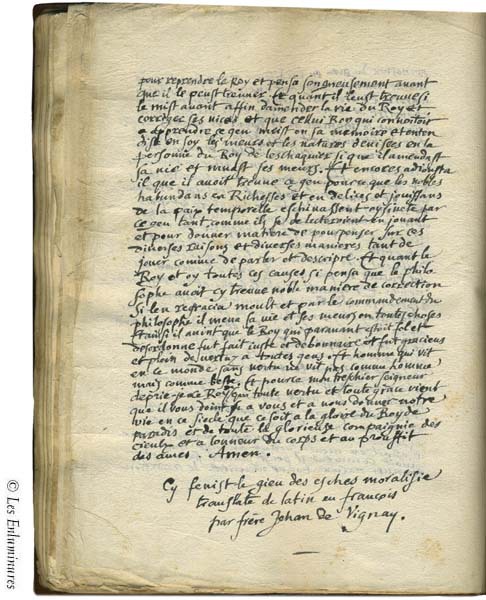 pour reprendre le Roy et pensa songneusement auant
que il le peust trenner. Et quant il leust trenne si
le mist auant affin damender la vie du Roy et
corriger ses vices et que cellui Roy qui conuoitoit
a apprendre ce geu meist en sa memoire et enten
dist en soy les meurs et les natures deuisees en la
personne du Roy de leschaquier si que il amendast
sa vie et muast ses meurs. Et encores adiousta
il que il auoit trenne ce geu pource que les nobles
habundans en Richesses et en delices et jouissans
de la paix temporelle eschiuassent oysiuete par
ce geu tant comme ilz se delecteroient en jouant
et pour donner matiere de pourpenser sur ces
diuerses Raisons et diuerses manieres tant de
jouer comme de parler et descripre. Et quant le
Roy et oy toutes ces causes si pensa que le philo
sophe auoit cy treuue noble maniere de correction
Si len regracia moult et par le commandement du
philosophe il mena sa vie et ses meurs en toutes choses
Et ainsi il auint que le Roy qui parauant estoit fol et
desordonne fut fait iuste et debonnaire et fut gracieux
et plein de vertuz a toutes gens
en ce monde sans vertu ne vit pas comme homme
mais comme beste. Et pource mon treschier seigneur
deprie je a Roy qui toute vertu et toute grace vient
que il vous doint et a vous et a nous donner nostre
vie en ce siecle que ce soit a la gloire du Roy de
paradis et de toute la glorieuse compaignie des
cieulx et a lonneur du corps et au prouffit
des ames. Amen.
Cy fenist le gieu des esches moralisie
translate de latin en francois
par frère Jehan de Vignay.
© Les Enluminures